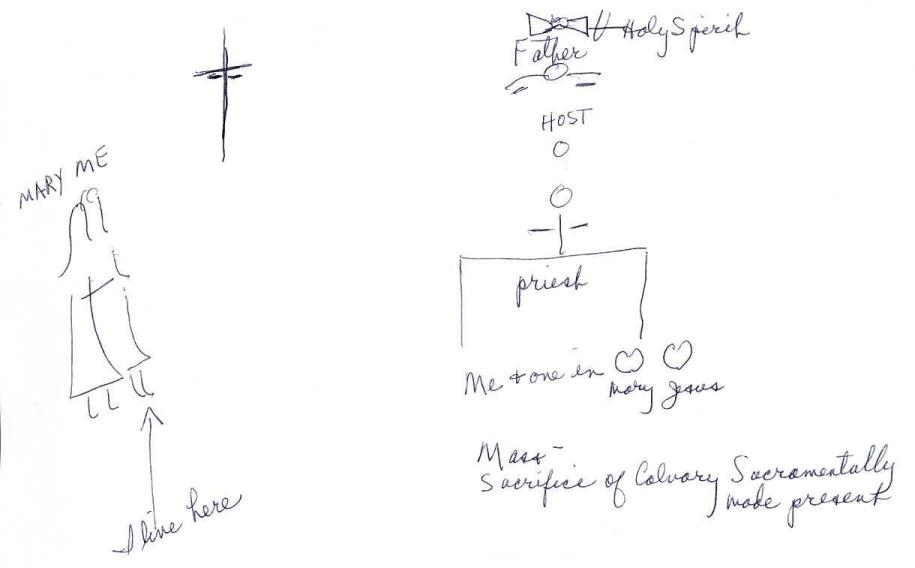 Holy Spirit
Father
HOST
MARY ME
priest
Me & one in
Mary Jesus
I live here
Mass-
Sacrifice of Calvary Sacramentally
made present